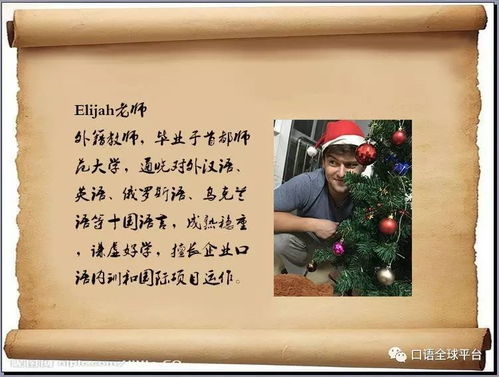 Elijah老师
外籍教师，毕业于首都师
范大学，通晓对外汉语、
英语、俄罗斯语、乌克兰
语等十国语言，成熟稳重
，谦虚好学，擅长企业口
语内训和国际项目运作。
口语全球平台